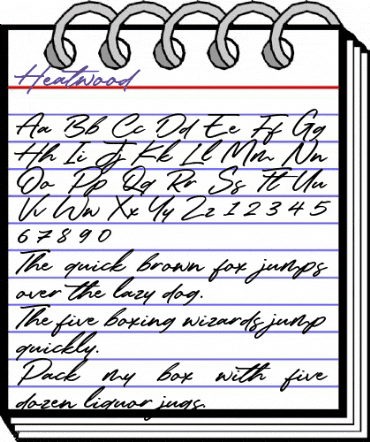 Heatwood
Aa Bb Cc Dd Ee Ff Gg
Hh Ii Jj Kk Ll Mm Nn
Oo Pp Qq Rr Ss Tt Uu
Vv Ww Xx Yy Zz 1 2 3 4 5
6 7 8 9 0
The quick brown fox jumps
over the lazy dog.
The five boxing wizards jump
quickly.
Pack my box with five
dozen liquor jugs.